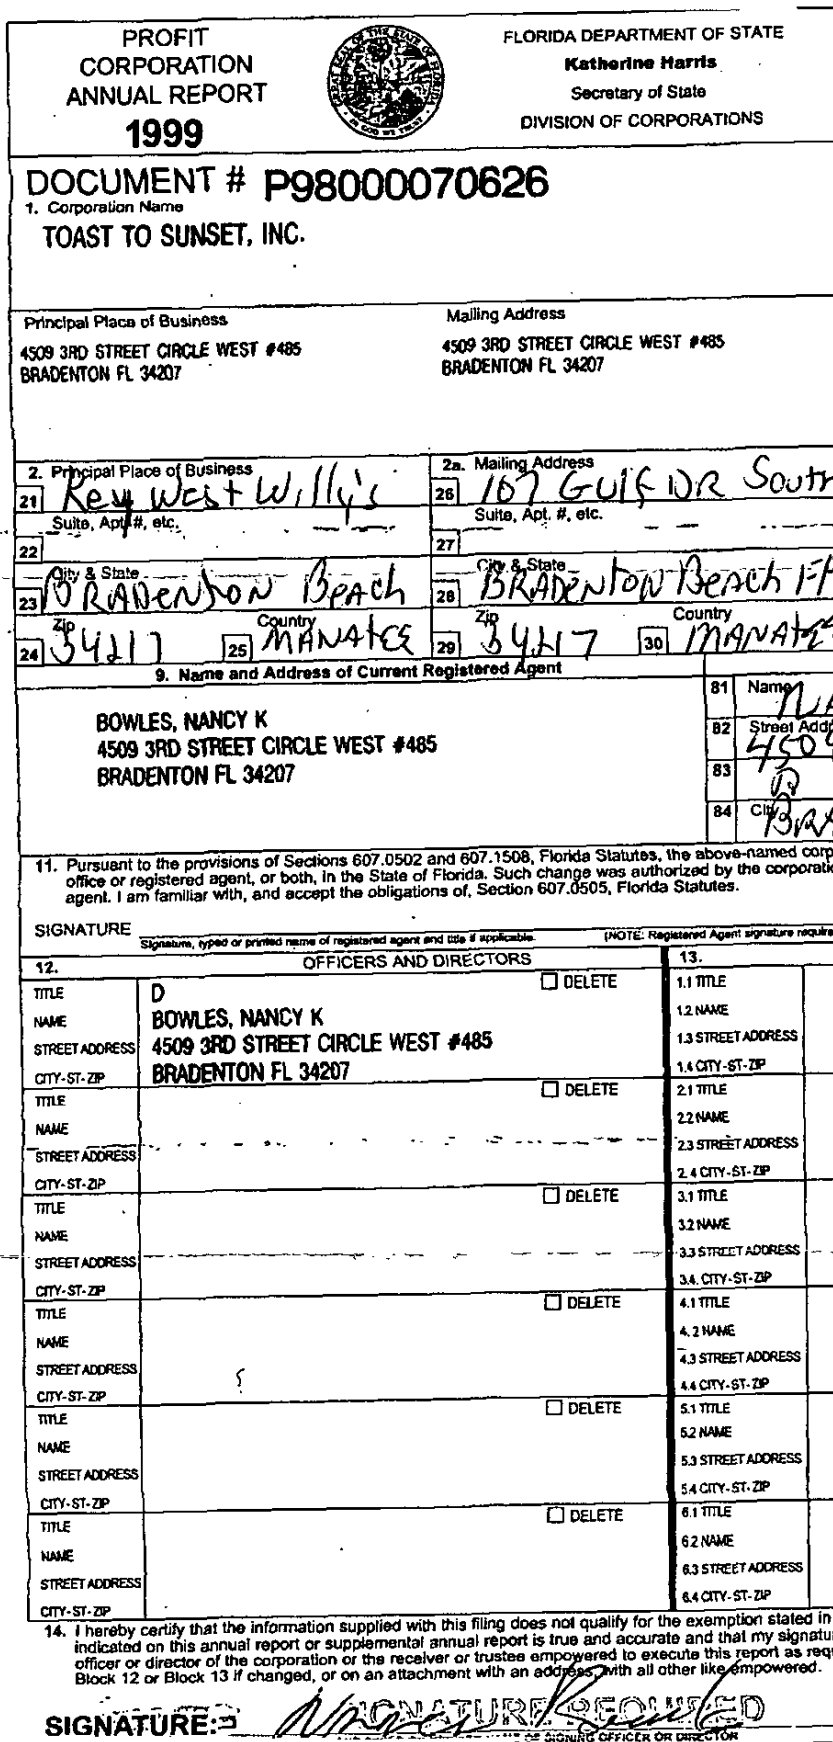 PROFIT
CORPORATION
ANNUAL REPORT
1999
GREAT SEAL OF THE STATE OF FLORIDA
IN GOD WE TRUST
FLORIDA DEPARTMENT OF STATE
Katherine Harris
Secretary of State
DIVISION OF CORPORATIONS
DOCUMENT # P98000070626
1. Corporation Name
TOAST TO SUNSET, INC.
Principal Place of Business
4509 3RD STREET CIRCLE WEST #485
BRADENTON FL 34207
Mailing Address
4509 3RD STREET CIRCLE WEST #485
BRADENTON FL 34207
2. Principal Place of Business
21 Key West Willy's
Suite, Apt. #, etc.
22
City & State
23 BRADENTON BEACH
Zip
24 34217
Country
25 MANATEE
2a. Mailing Address
26 107 GULF DR South
Suite, Apt. #, etc.
27
City & State
28 BRADENTON BEACH Fl
Zip
29 34217
Country
30 MANATEE
9. Name and Address of Current Registered Agent
BOWLES, NANCY K
4509 3RD STREET CIRCLE WEST #485
BRADENTON FL 34207
81 Name
NA
82 Street Addr
4509
83
84 City
BRA
11. Pursuant to the provisions of Sections 607.0502 and 607.1508, Florida Statutes, the above-named corp
office or registered agent, or both, in the State of Florida. Such change was authorized by the corporatio
agent. I am familiar with, and accept the obligations of, Section 607.0505, Florida Statutes.
SIGNATURE
Signature, typed or printed name of registered agent and title if applicable. (NOTE: Registered Agent signature require
12. OFFICERS AND DIRECTORS 13.
TITLE D DELETE
NAME BOWLES, NANCY K
STREET ADDRESS 4509 3RD STREET CIRCLE WEST #485
CITY-ST-ZIP BRADENTON FL 34207
1.1 TITLE
1.2 NAME
1.3 STREET ADDRESS
1.4 CITY-ST-ZIP
TITLE DELETE
NAME
STREET ADDRESS
CITY-ST-ZIP
2.1 TITLE
2.2 NAME
2.3 STREET ADDRESS
2.4 CITY-ST-ZIP
TITLE DELETE
NAME
STREET ADDRESS
CITY-ST-ZIP
3.1 TITLE
3.2 NAME
3.3 STREET ADDRESS
3.4. CITY-ST-ZIP
TITLE DELETE
NAME
STREET ADDRESS
CITY-ST-ZIP
4.1 TITLE
4.2 NAME
4.3 STREET ADDRESS
4.4 CITY-ST-ZIP
TITLE DELETE
NAME
STREET ADDRESS
CITY-ST-ZIP
5.1 TITLE
5.2 NAME
5.3 STREET ADDRESS
5.4 CITY-ST-ZIP
TITLE DELETE
NAME
STREET ADDRESS
CITY-ST-ZIP
6.1 TITLE
6.2 NAME
6.3 STREET ADDRESS
6.4 CITY-ST-ZIP
14. I hereby certify that the information supplied with this filing does not qualify for the exemption stated in
indicated on this annual report or supplemental annual report is true and accurate and that my signatu
officer or director of the corporation or the receiver or trustee empowered to execute this report as requ
Block 12 or Block 13 if changed, or on an attachment with an address, with all other like empowered.
SIGNATURE: SIGNATURE REQUIRED
OF SIGNING OFFICER OR DIRECTOR